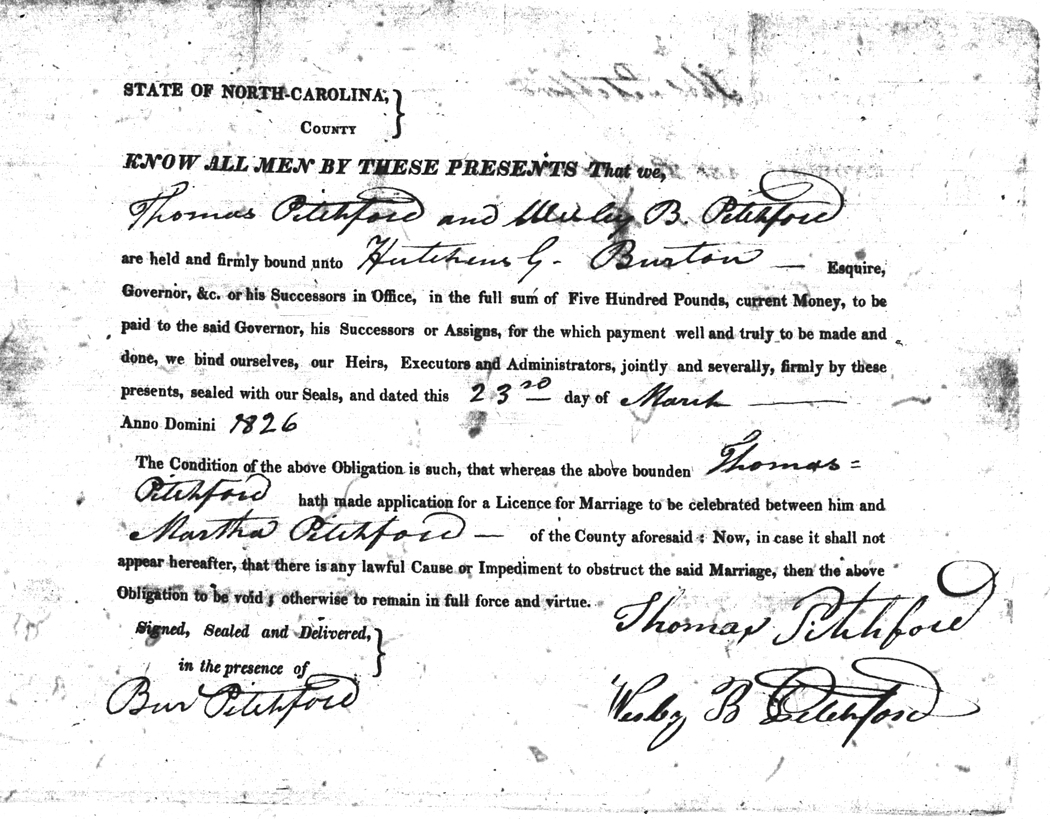 STATE OF NORTH-CAROLINA, }
COUNTY
KNOW ALL MEN BY THESE PRESENTS That we,
Thomas Pitchford and Wesley B. Pitchford
are held and firmly bound unto Hutchins G. Burton — Esquire,
Governor, &c. or his Successors in Office, in the full sum of Five Hundred Pounds, current Money, to be
paid to the said Governor, his Successors or Assigns, for the which payment well and truly to be made and
done, we bind ourselves, our Heirs, Executors and Administrators, jointly and severally, firmly by these
presents, sealed with our Seals, and dated this 23rd day of March —
Anno Domini 1826
The Condition of the above Obligation is such, that whereas the above bounden Thomas =
Pitchford hath made application for a Licence for Marriage to be celebrated between him and
Martha Pitchford — of the County aforesaid : Now, in case it shall not
appear hereafter, that there is any lawful Cause or Impediment to obstruct the said Marriage, then the above
Obligation to be void ; otherwise to remain in full force and virtue.
Thomas Pitchford
Signed, Sealed and Delivered, }
in the presence of
Bur Pitchford
Wesley B Pitchford